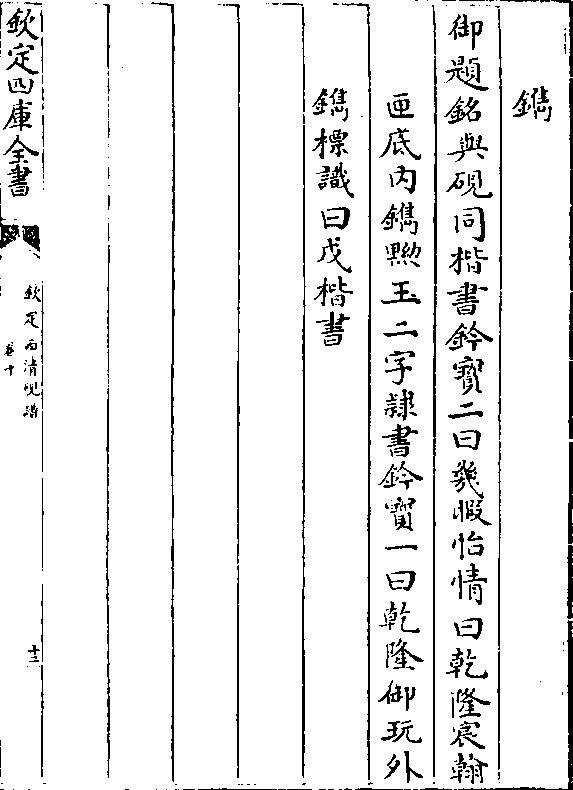 鐫
御題銘與硯同楷書鈐寶二曰幾暇怡情曰乾隆宸翰
匣底内鐫黟玉二字隸書鈐寶一曰乾隆御玩外
鐫標識曰戊楷書
欽定四庫全書
欽定西清硯譜
卷十
十三